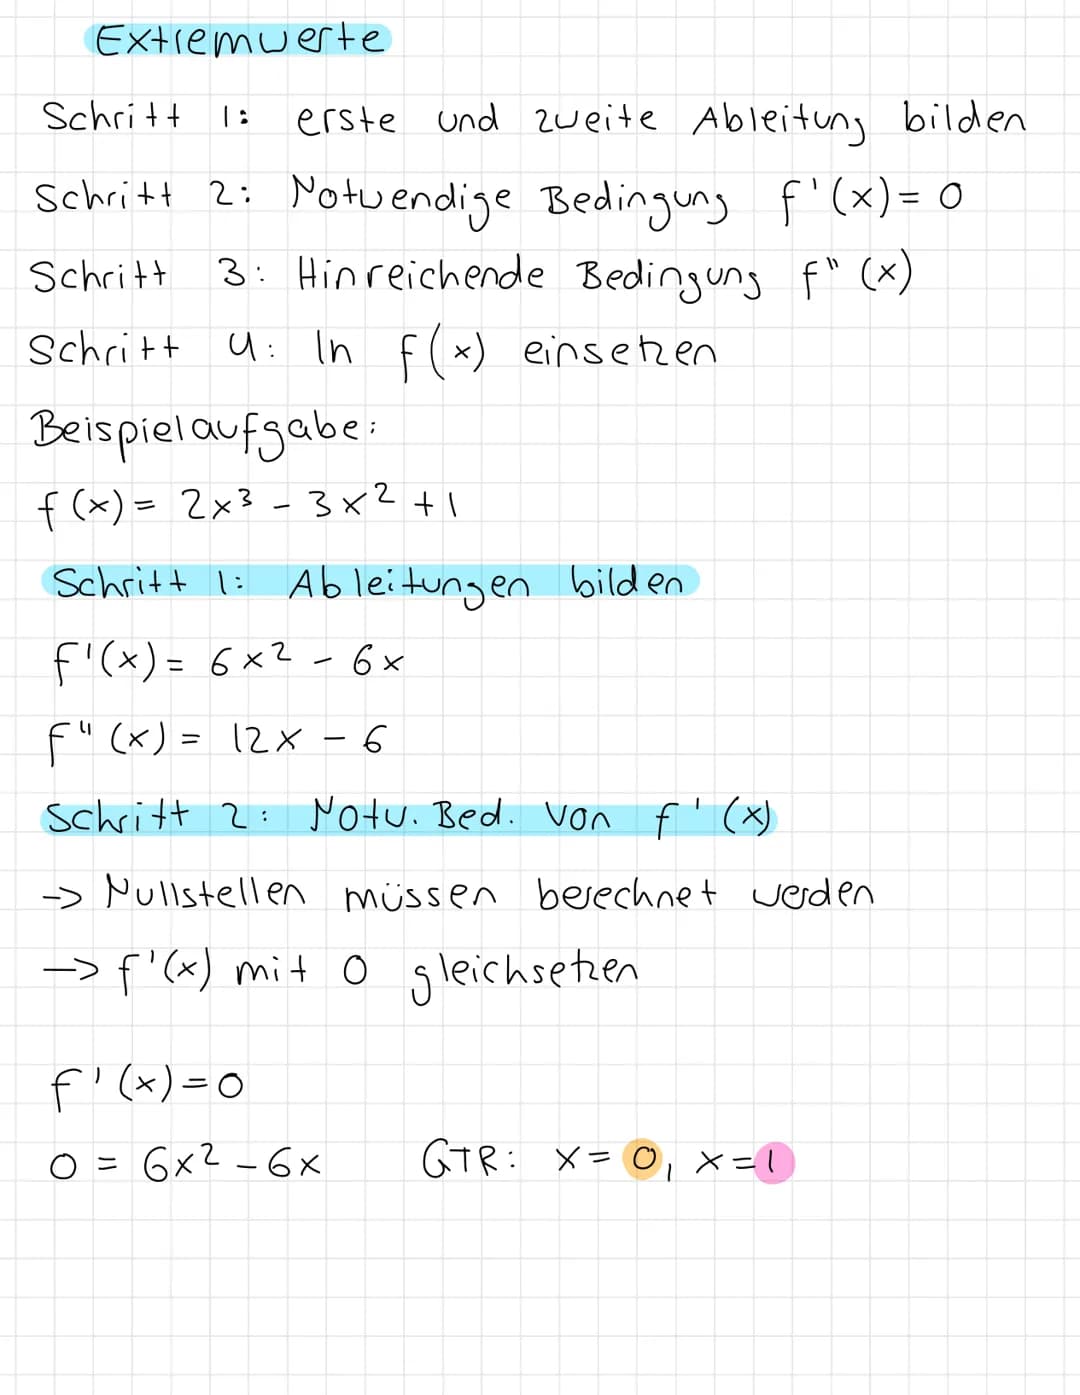 Extremwerte
Schritt 1: erste und zweite Ableitung bilden
Schritt 2: Notwendige Bedingung f'(x) = 0
Schritt 3: Hinreichende Bedingung f"(x)
Schritt 4: In f(x) einsetzen
Beispielaufgabe:
f(x) = 2x³ - 3x² + 1
Schritt 1: Ableitungen bilden
f'(x) = 6x² - 6x
f"(x) = 12x - 6
Schritt 2: Notw. Bed. von f'(x)
-> Nullstellen müssen berechnet werden
-> f'(x) mit 0 gleichsetzen
f'(x) = 0
0 = 6x² - 6x GTR: x = 0, x = 1